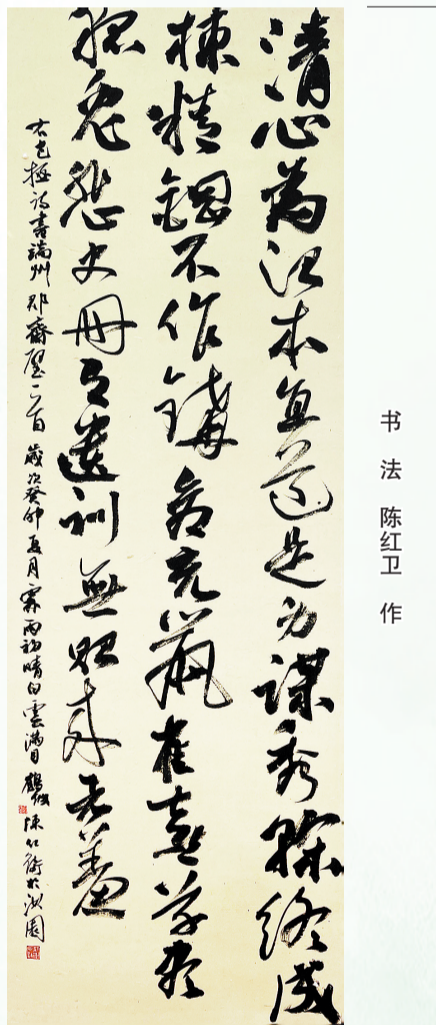 清心為治本直道是身謀秀榦終成
棟精鋼不作鉤倉充鼠雀喜草盡
狐兔愁史冊有遺訓無貽來者羞
右包拯詩書端州郡齋壁一首 歲次癸卯夏月霖雨初晴白雲滿目 陳紅衛於園
书法 陈红卫 作